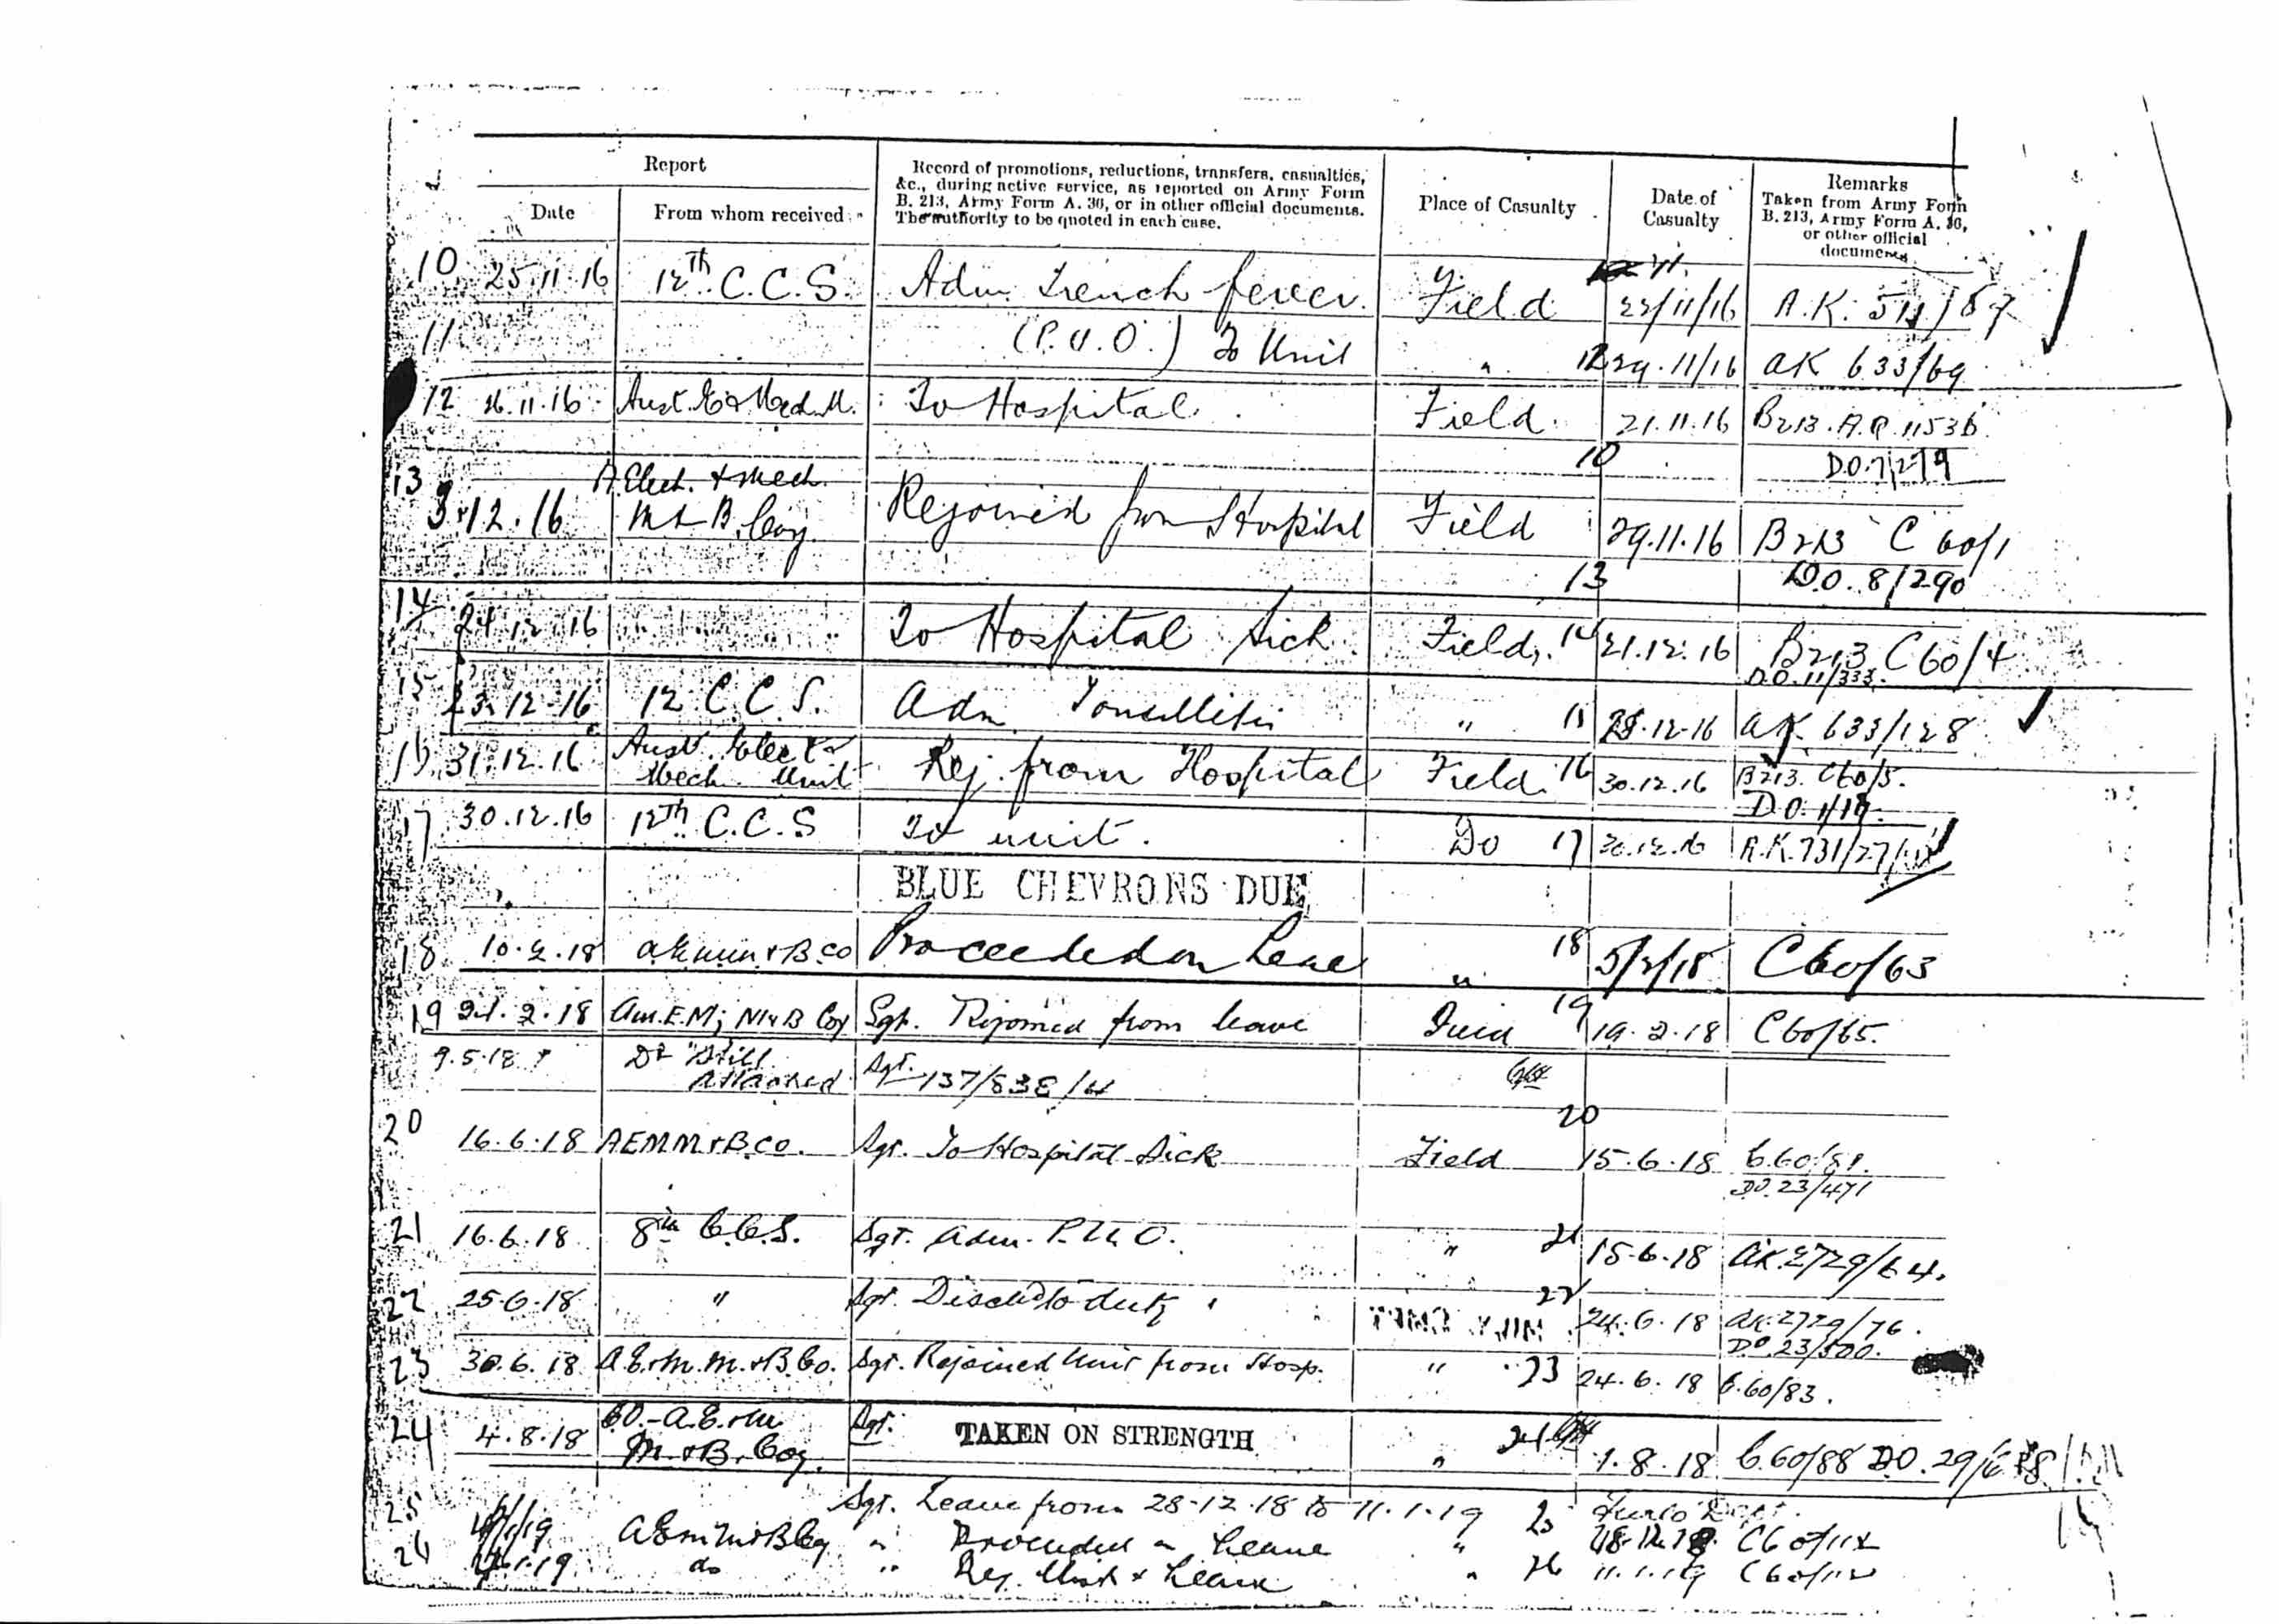 Report
Record of promotions, reductions, transfers, casualties,
&c., during active service, as reported on Army Form
B. 213, Army Form A. 36, or in other official documents.
The authority to be quoted in each case.
Place of Casualty
Date of
Casualty
Remarks
Taken from Army Form
B. 213, Army Form A. 36,
or other official
documents
Date
From whom received
10 25.11.16 12th C.C.S. Adm. Trench fever. Field 22/11/16 A.K. 511/87
11 (P.U.O.) To Unit " 29.11/16 AK 633/69
12 26.11.16 Aust. E & M To Hospital Field 21.11.16 B213. A.Q. 11536
10 D.O. 7/279
13 A Elect. & Mech.
3.12.16 M & B Coy. Rejoined from Hospital Field 29.11.16 B213 C 60/1
13 D.O. 8/290
14 24.12.16 To Hospital Sick Field 14 21.12.16 B213 C60/4
D.O. 11/333.
15 23.12.16 12 C.C.S. Adm Tonsillitis " 15 12.16 AK 633/128
16 31.12.16 Aust. Elect &
Mech. Unit Rej. from Hospital Field 16 30.12.16 B213. C60/5.
D.O. 1/19.
17 30.12.16 12th C.C.S To unit. Do 17 30.12.16 A.K. 731/27
BLUE CHEVRONS DUE
18 10.2.18 & B Co Proceeded on Leave " 18 5/2/18 C60/63
19 21.2.18 E.M; M & B Coy Sgt. Rejoined from leave Field 19 19.2.18 C60/65.
9.5.18 Do Still
attached Sgt. 137/838/4
20
20 16.6.18 AEMM & B Co. Sgt. To Hospital Sick Field 15.6.18 C.60/81.
D.O. 23/471
21 16.6.18 8th C.C.S. Sgt. Adm. P.U.O. " 21 15.6.18 AK. 2729/64.
22 25.6.18 " Sgt. Disch'd to duty 22 24.6.18 AK. 2729/76.
D.O. 23/500.
23 30.6.18 A.E. & M.M. & B. Co. Sgt. Rejoined Unit from Hosp. " 23 24.6.18 C.60/83.
24 4.8.18 CO. - A.E. & M.
M. & B. Coy. Sgt. TAKEN ON STRENGTH " 24 1.8.18 C.60/88 D.O. 29/
25 Sgt. Leave from 28-12-18 to 11.1.19 25 Furlo Dept.
1/19 AEMM & B Coy " Proceeded on Leave " C60/112
26 1.19 do " Rej. Unit & Leave " 26 11.1.19 C60/112